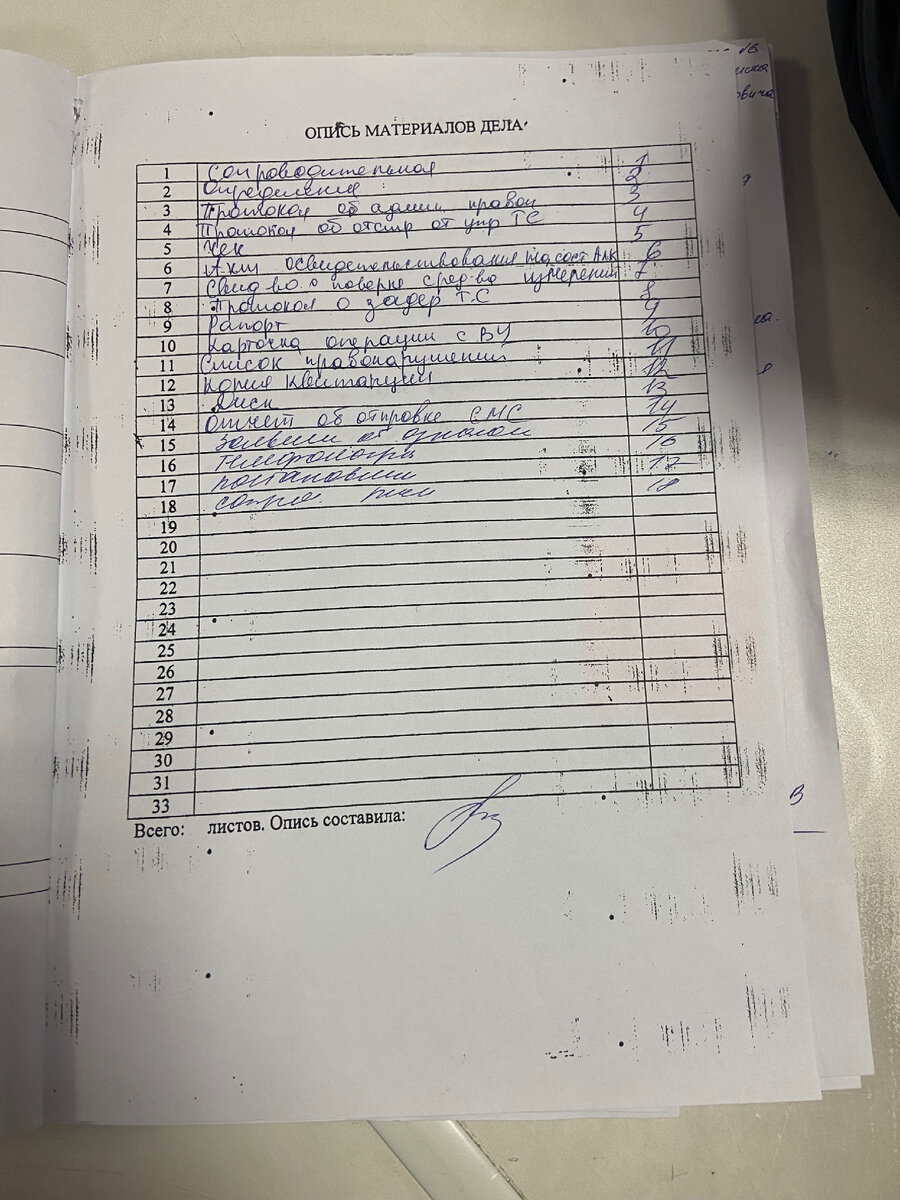 ОПИСЬ МАТЕРИАЛОВ ДЕЛА
1 Сопроводительная 1
2 Определения 2
3 Протокол об админ правон 3
4 Протокол об отстр от упр ТС 4
5 Чек 5
6 Акт освидетельствования на сост Алк 6
7 Свид во о поверке сред-ва измерений 7
8 Протокол о задер ТС 8
9 Рапорт 9
10 Карточка операции с ВУ 10
11 Список правонарушений 11
12 Копия квитанции 12
13 Диск 13
14 Отчет об отправке СМС 14
15 15
16 16
17 17
18 18
19
20
21
22
23
24
25
26
27
28
29
30
31
33
Всего: листов. Опись составила: